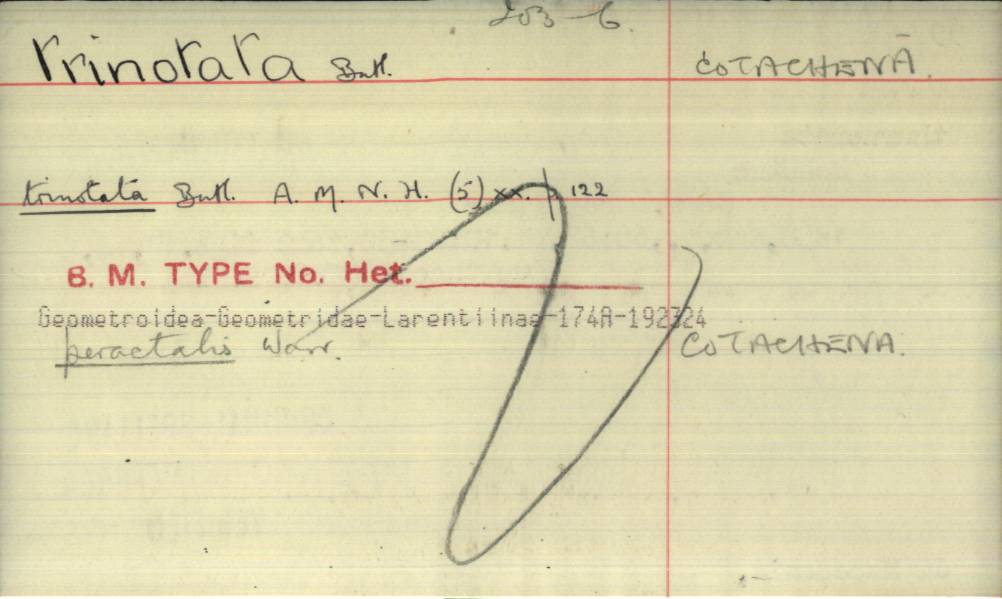 203-6.
trinotata Butl. COTACHENA.
trinotata Butl. A. M. N. H. (5) xx. p. 122
B. M. TYPE No. Het.
Geometroidea-Geometridae-Larentiinae-174A-192324
peractalis Warr. COTACHENA.